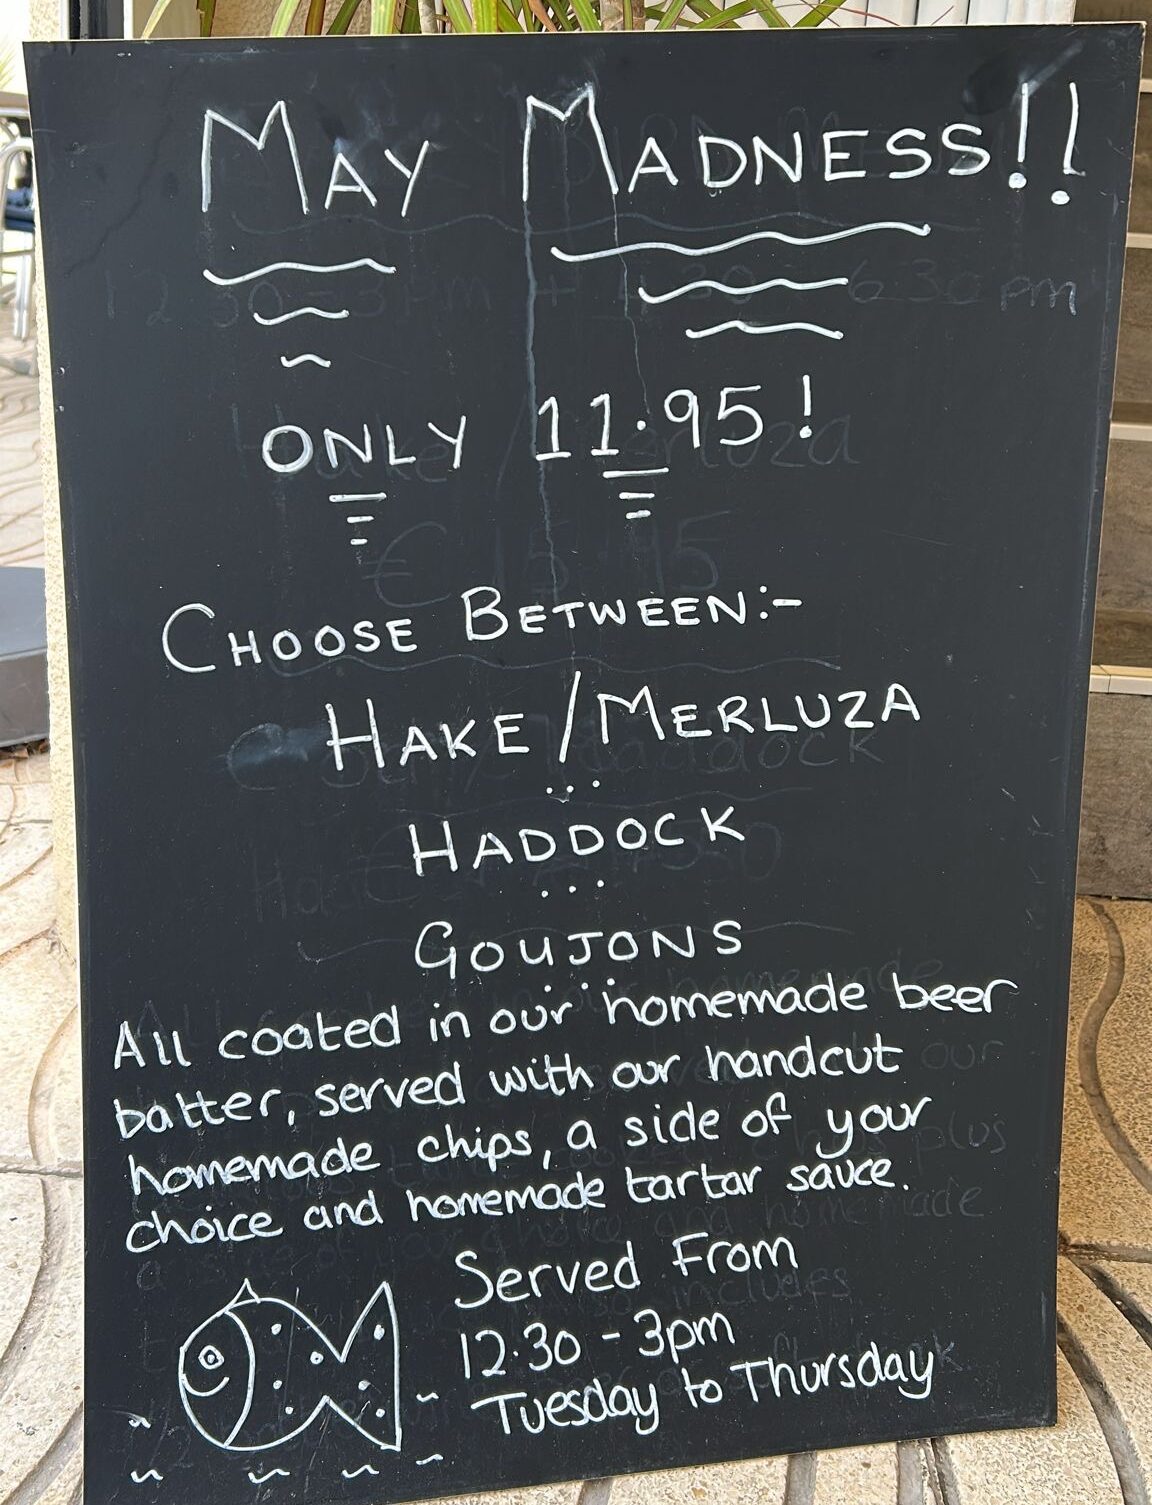 MAY MADNESS!!
ONLY 11.95!
CHOOSE BETWEEN:-
HAKE/MERLUZA
HADDOCK
GOUJONS
All coated in our homemade beer
batter, served with our handcut
homemade chips, a side of your
choice and homemade tartar sauce.
Served From
12.30 - 3pm
Tuesday to Thursday